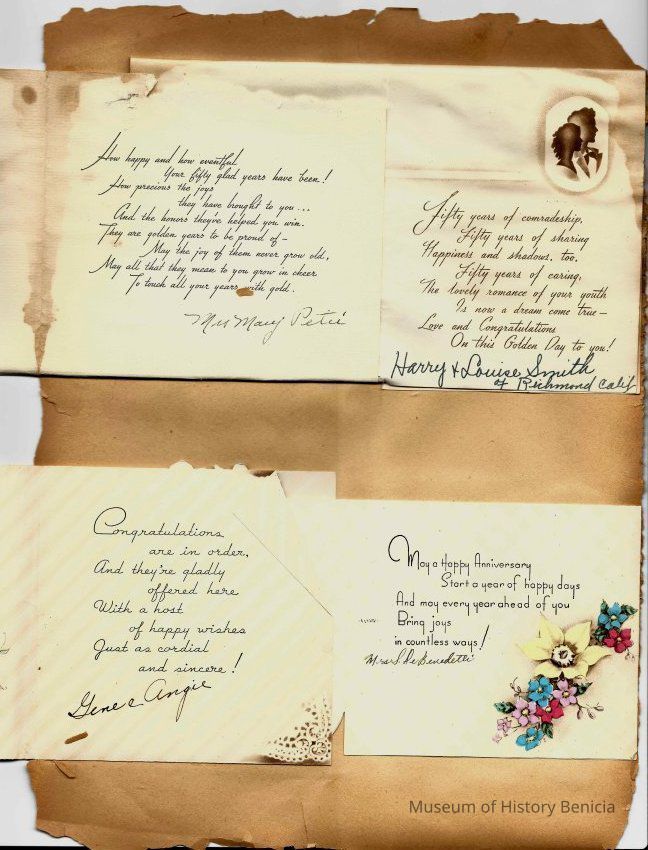 How happy and how eventful
Your fifty glad years have been!
How precious the joys
they have brought to you...
And the honors they've helped you win.
They are golden years to be proud of—
May the joy of them never grow old,
May all that they mean to you grow in cheer
To touch all your years with gold.
Mrs Mary
Fifty years of comradeship,
Fifty years of sharing
Happiness and shadows, too,
Fifty years of caring,
The lovely romance of your youth
Is now a dream come true—
Love and Congratulations
On this Golden Day to you!
Harry & Louise Smith
of Richmond Calif
Congratulations
are in order,
And they're gladly
offered here
With a host
of happy wishes
Just as cordial
and sincere!
Gene & Angie
May a Happy Anniversary
Start a year of happy days
And may every year ahead of you
Bring joys
in countless ways!
De Benedetti
Museum of History Benicia